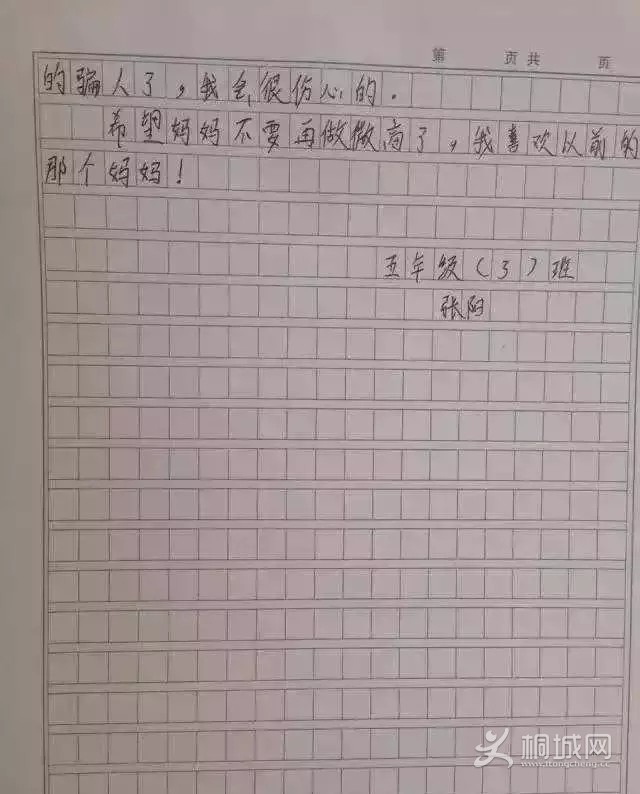 第 页 共 页
的骗人了，我会很伤心的.
希望妈妈不要再做微商了，我喜欢以前的
那个妈妈！
五年级(3)班
张阳
桐城网
www.itongcheng.cc